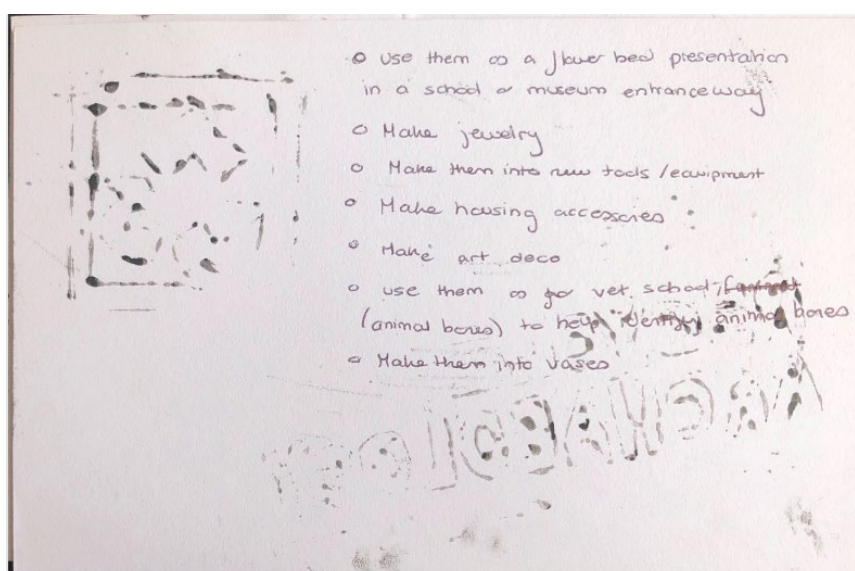 o use them as a flower bed presentation
in a school or museum entranceway
o Make jewelry
o Make them into new tools / equipment
o Make housing accessories
o Make art deco
o use them as for vet school,
(animal bones) to help identify animal bones
o Make them into vases